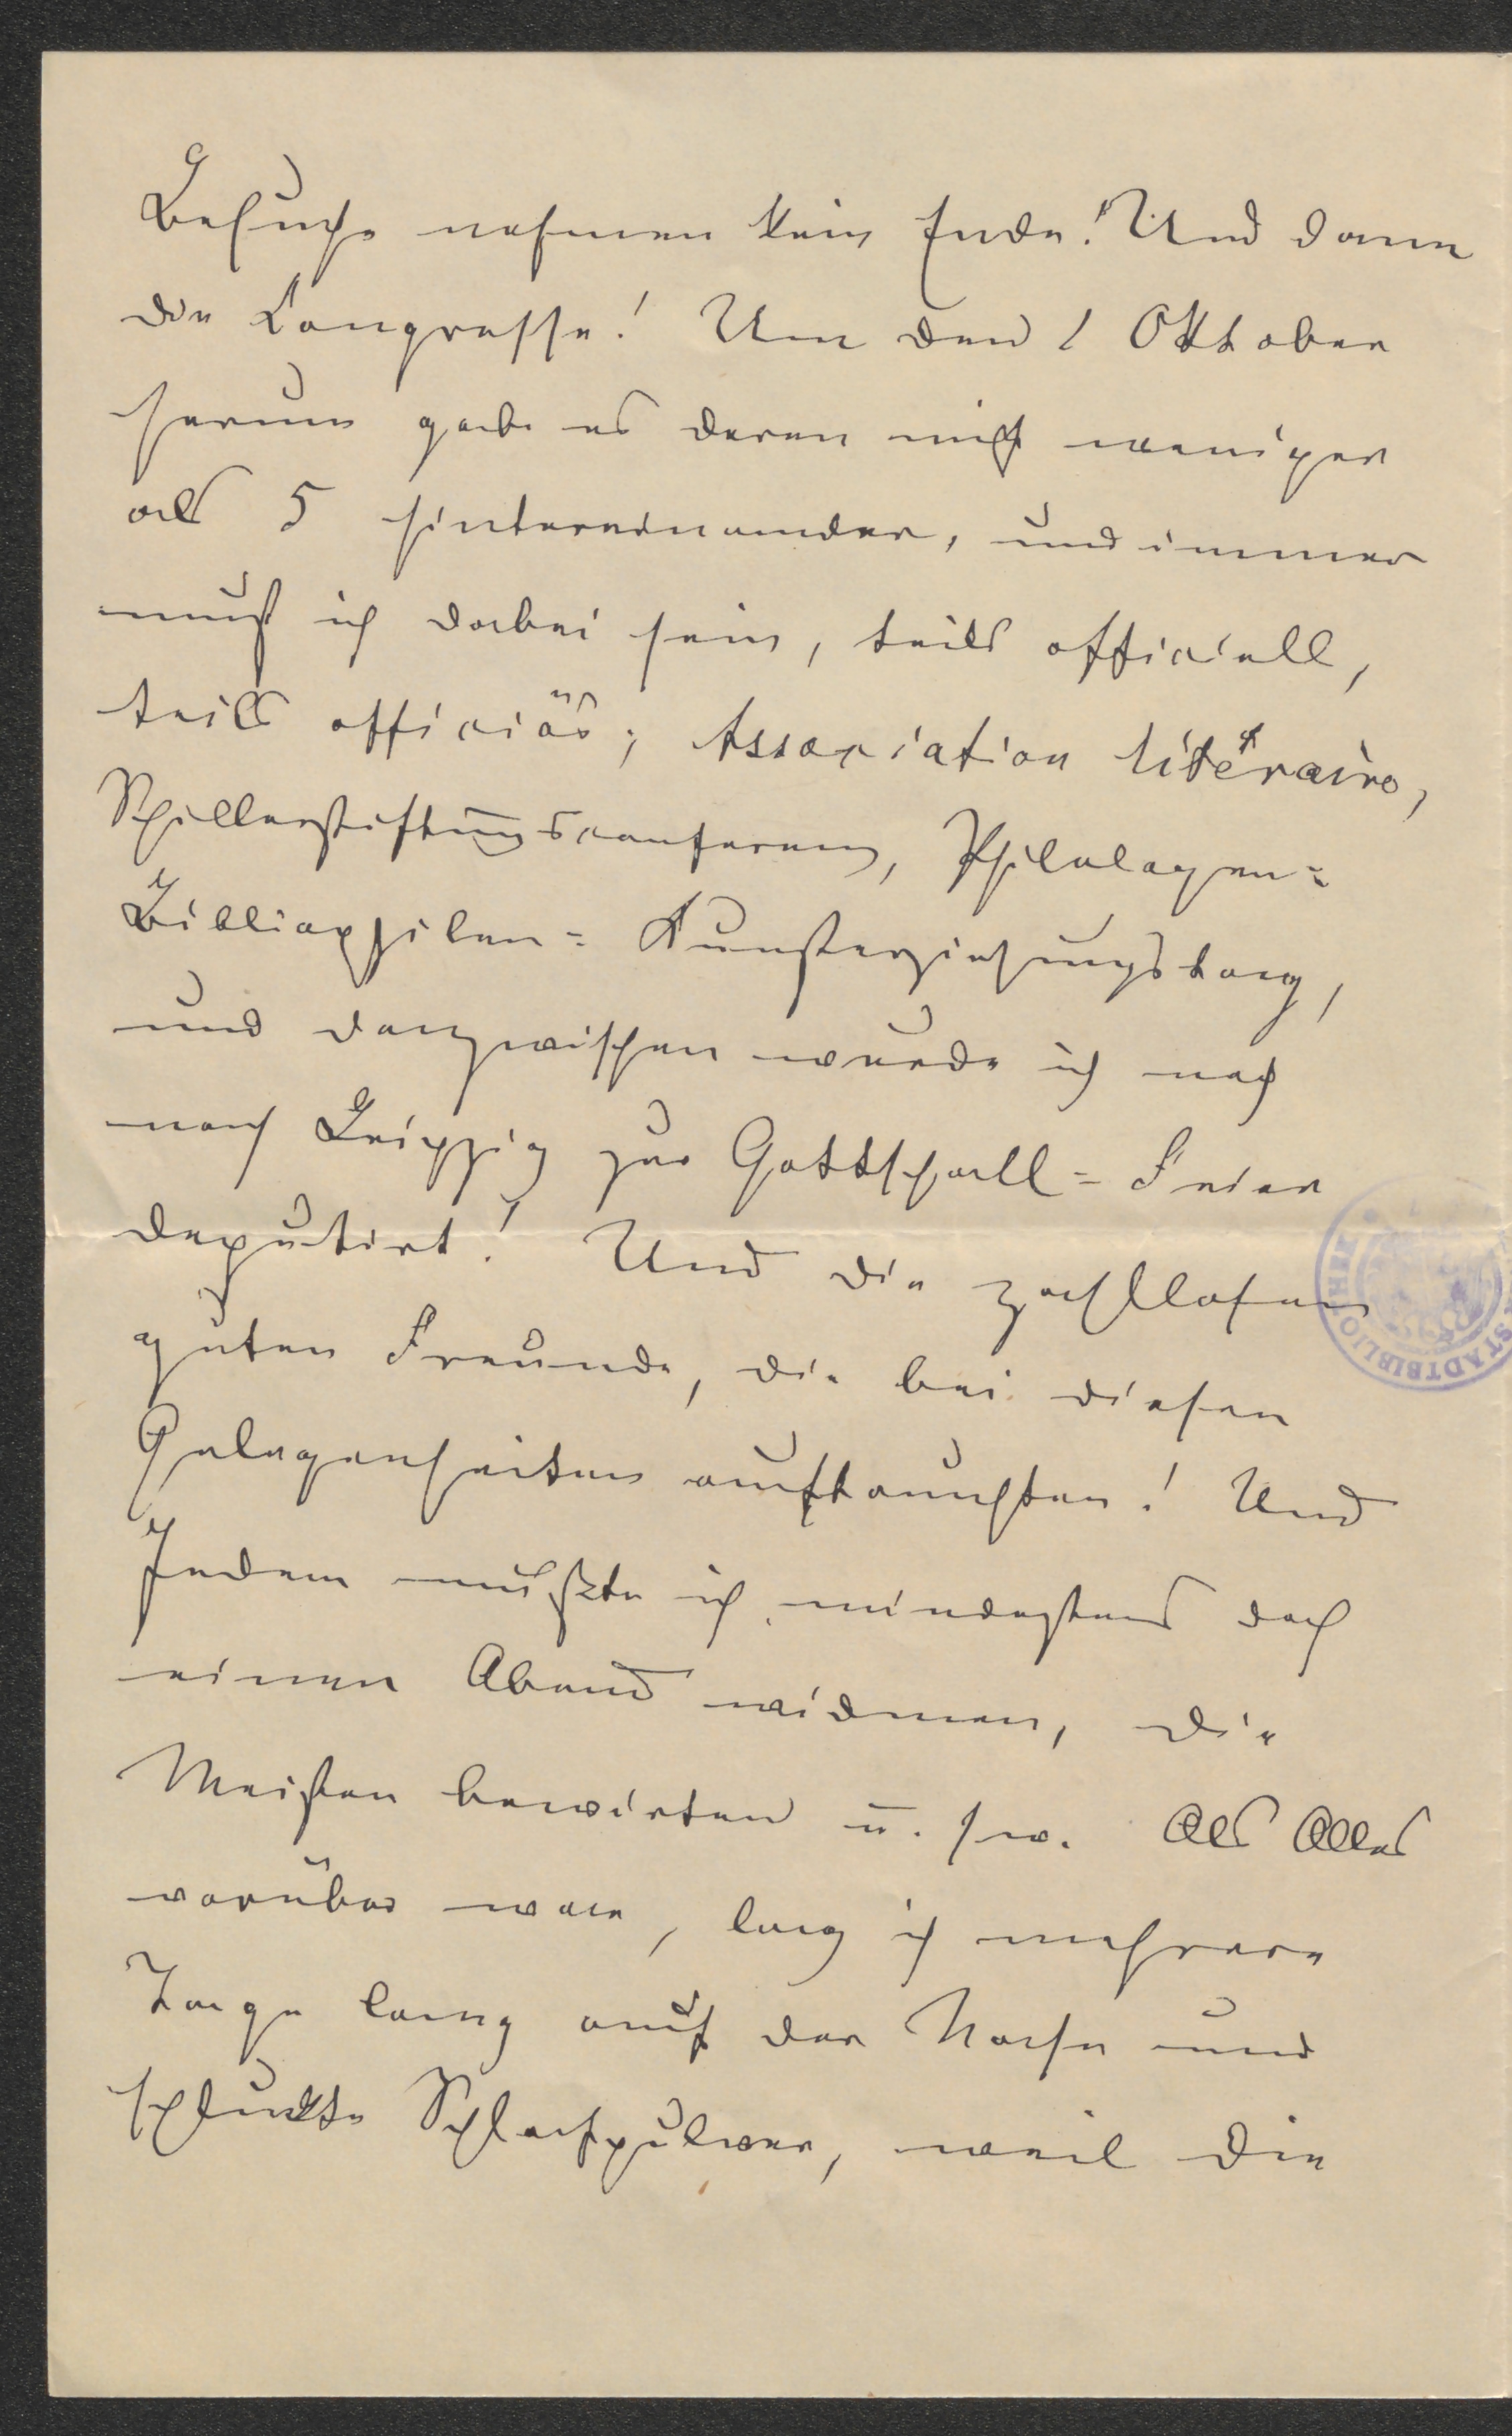 Besuche nehmen kein Ende! Und dann
die Congresse! Um den 1 Oktober
herum gab es deren nicht weniger
als 5 hintereinander, und immer
mußt ich dabei sein, teils officiell,
teils officiös; Association litéraire,
Schillerstiftungsconferenz, Philologen=
Bibliophilen= Kunsterziehungstag,
und dazwischen wurde ich noch
nach Leipzig zur Gottschall=Feier
deputirt! Und die zahllosen
guten Freunde, die bei diesen
Gelegenheiten auftauchten! Und
Jedem mußte ich mindestens doch
einen Abend widmen, die
Meisten bewirten u. s w. Als Alles
vorüber war, lag ich mehrere
Tage lang auf der Nase und
schluckte Schlafpulver, weil die
STADTBIBLIOTHEK